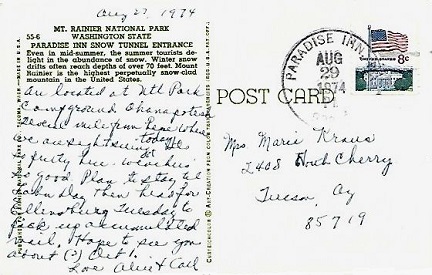 Aug 27, 1974
MT. RAINIER NATIONAL PARK
WASHINGTON STATE
55-6
PARADISE INN SNOW TUNNEL ENTRANCE
Even in mid-summer, the summer tourists de-
light in the abundance of snow. Winter snow
drifts often reach depths of over 70 feet. Mount
Rainier is the highest perpetually snow-clad
mountain in the United States.
POST CARD
PARADISE INN
AUG
29
1974
8c
Are located at Ntl Park
Campground
from here where
we are sightseeing today.
is pretty here
is good Plan to stay til
Day then head for
Ellensburg Tuesday to
pick up accumulated
mail. Hope to see you
about (?) Oct 1.
Love Alice & Carl
Mrs Marie Kraus
2408 North Cherry
Tucson, Az
85719